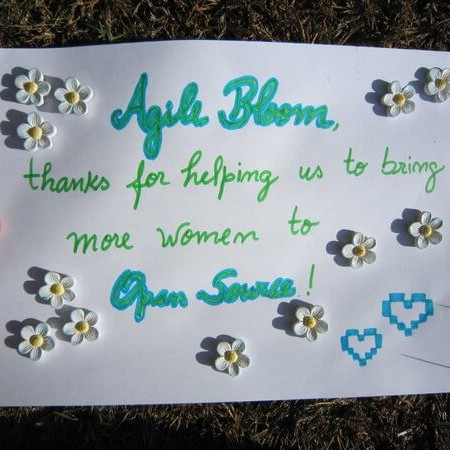 Agile Bloom,
thanks for helping us to bring
more women to
Open Source!